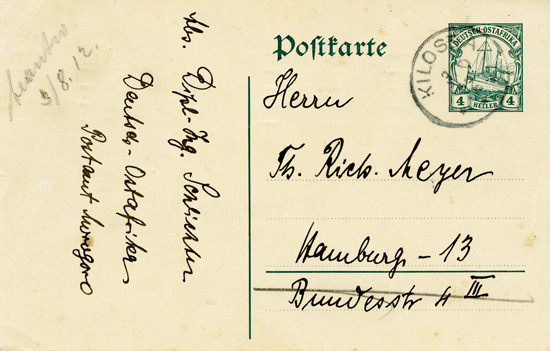 3/8.12.
Abs. Dipl-Ing. Schlichter
Deutsch-Ostafrika
Postamt Morogoro
Postkarte
KILOSSA
DEUTSCH-OSTAFRIKA
4 HELLER 4
Herrn
Th. Rich. Meyer
Hamburg - 13
Bundesstr 4 III